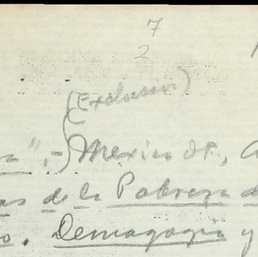 7
2
(Exclusion)
", Mexico D.F.,
de la Pobreza
. Demagogia y